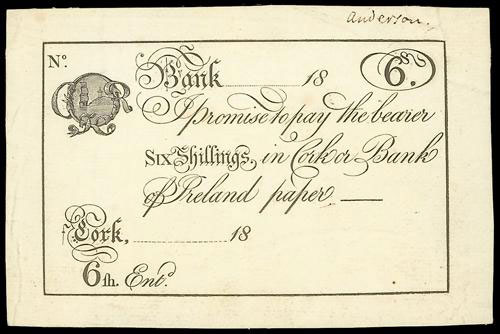 Anderson.
Nº.
Bank 18 6.s
I promise to pay the bearer
SIX Shillings, in Cork or Bank
of Ireland paper
Cork, 18
6sh. Entd.